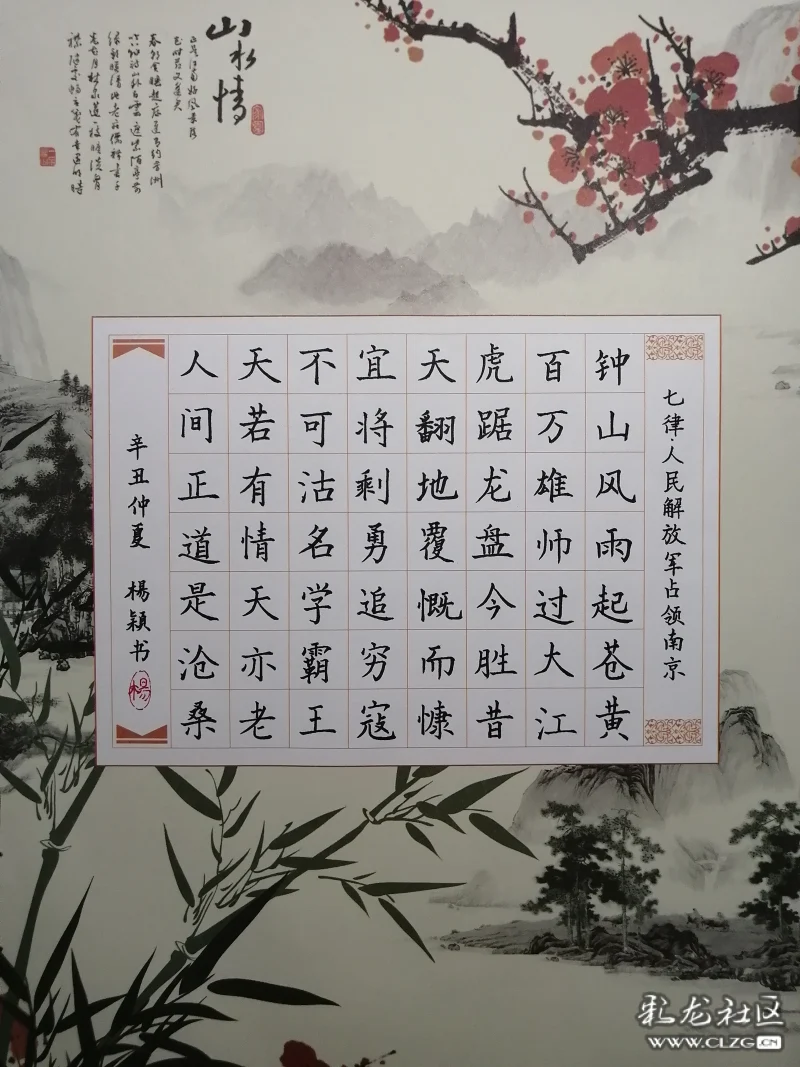 山水情
七律·人民解放军占领南京
钟山风雨起苍黄
百万雄师过大江
虎踞龙盘今胜昔
天翻地覆慨而慷
宜将剩勇追穷寇
不可沽名学霸王
天若有情天亦老
人间正道是沧桑
辛丑仲夏 楊穎书
楊
彩龙社区
WWW.CLZG.CN